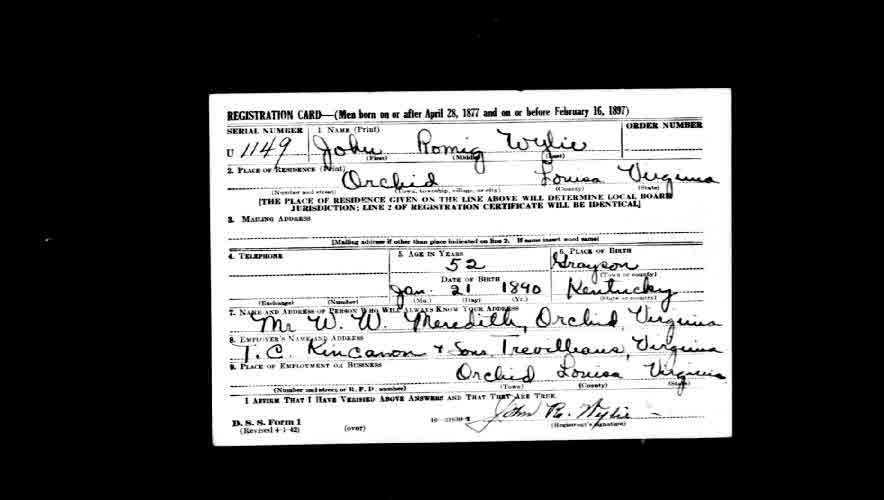 REGISTRATION CARD—(Men born on or after April 28, 1877 and on or before February 16, 1897)
SERIAL NUMBER 1. NAME (Print) ORDER NUMBER
U 1149 John Romig Wylie
(First) (Middle) (Last)
2. PLACE OF RESIDENCE (Print)
Orchid Louisa Virginia
(Number and street) (Town, township, village, or city) (County) (State)
[THE PLACE OF RESIDENCE GIVEN ON THE LINE ABOVE WILL DETERMINE LOCAL BOARD
JURISDICTION; LINE 2 OF REGISTRATION CERTIFICATE WILL BE IDENTICAL]
3. MAILING ADDRESS
[Mailing address if other than place indicated on line 2. If same insert word same]
4. TELEPHONE 5. AGE IN YEARS 6. PLACE OF BIRTH
52 Grayson
(Town or county)
DATE OF BIRTH
Jan. 21 1890 Kentucky
(Exchange) (Number) (Mo.) (Day) (Yr.) (State or country)
7. NAME AND ADDRESS OF PERSON WHO WILL ALWAYS KNOW YOUR ADDRESS
Mr W. W. Meredith, Orchid, Virginia
8. EMPLOYER'S NAME AND ADDRESS
T. C. Kincanon & Sons, Trevilheans, Virginia
9. PLACE OF EMPLOYMENT OR BUSINESS
Orchid Louisa Virginia
(Number and street or R. F. D. number) (Town) (County) (State)
I AFFIRM THAT I HAVE VERIFIED ABOVE ANSWERS AND THAT THEY ARE TRUE.
John Ro. Wylie
D. S. S. Form 1
(Revised 4-1-42) (over) (Registrant's signature)